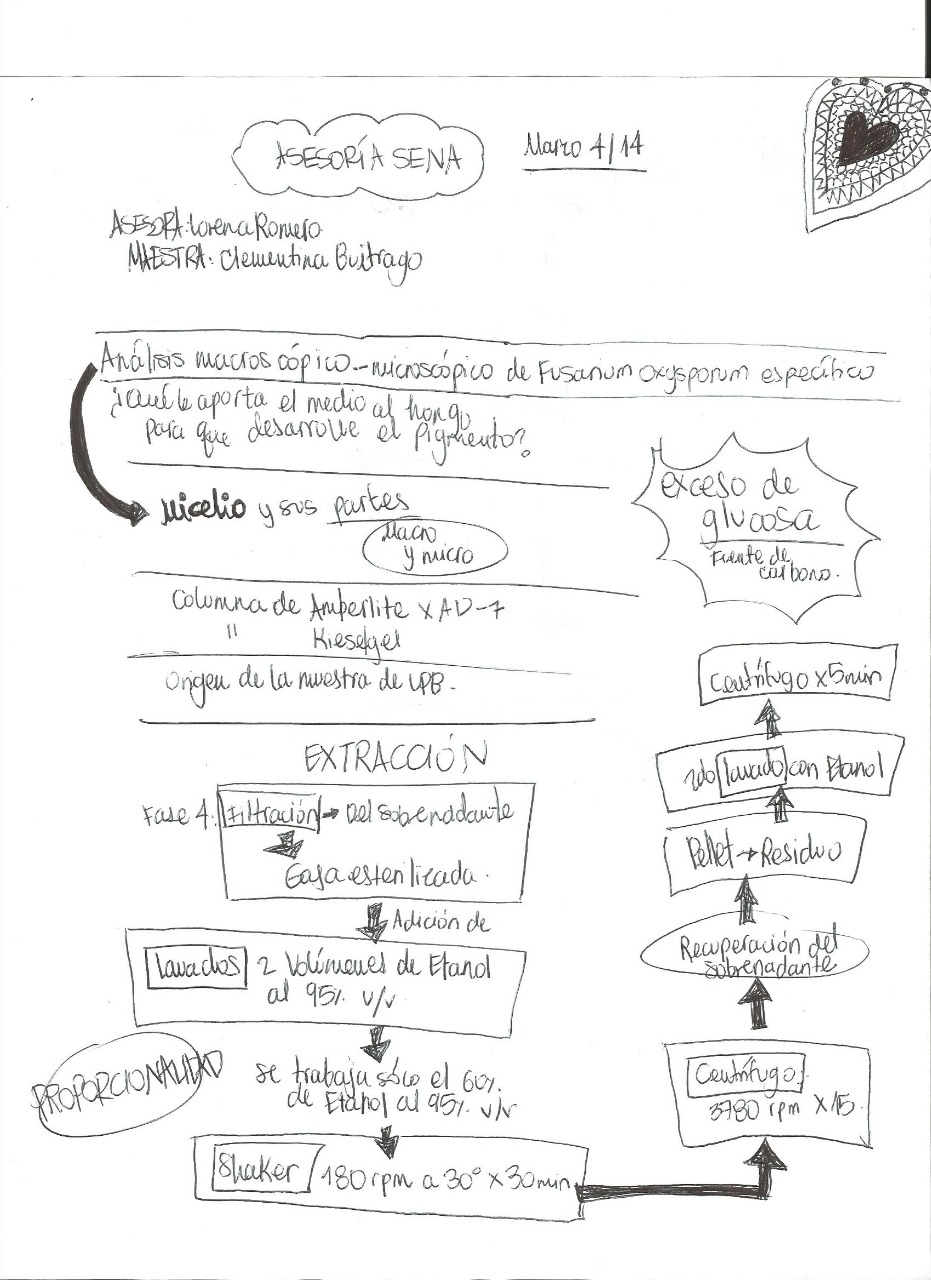 ASESORÍA SENA
Marzo 4/14
ASESORA: Lorena Romero
MAESTRA: Clementina Buitrago
Análisis macroscópico - microscópico de Fusarium Oxysporum específico
¿Qué le aporta el medio al hongo
para que desarrolle el pigmento?
Micelio y sus partes
Macro
y micro
exceso de
glucosa
Fuente de
carbono.
Columna de Amberlite XAD-7
" Kieselgel
Origen de la muestra de UPB.
EXTRACCIÓN
Fase 4. Filtración → Del sobrenadante
Gasa esterilizada.
Adición de
Lavados 2 Volúmenes de Etanol
al 95% v/v
PROPORCIONALIDAD
se trabaja sólo el 60%
de Etanol al 95% v/v
Shaker 180 rpm a 30° x 30 min
Centrífugo
3780 rpm x 15
Recuperación del
sobrenadante
Pellet → Residuo
2do lavado con Etanol
Centrífugo x 5 min